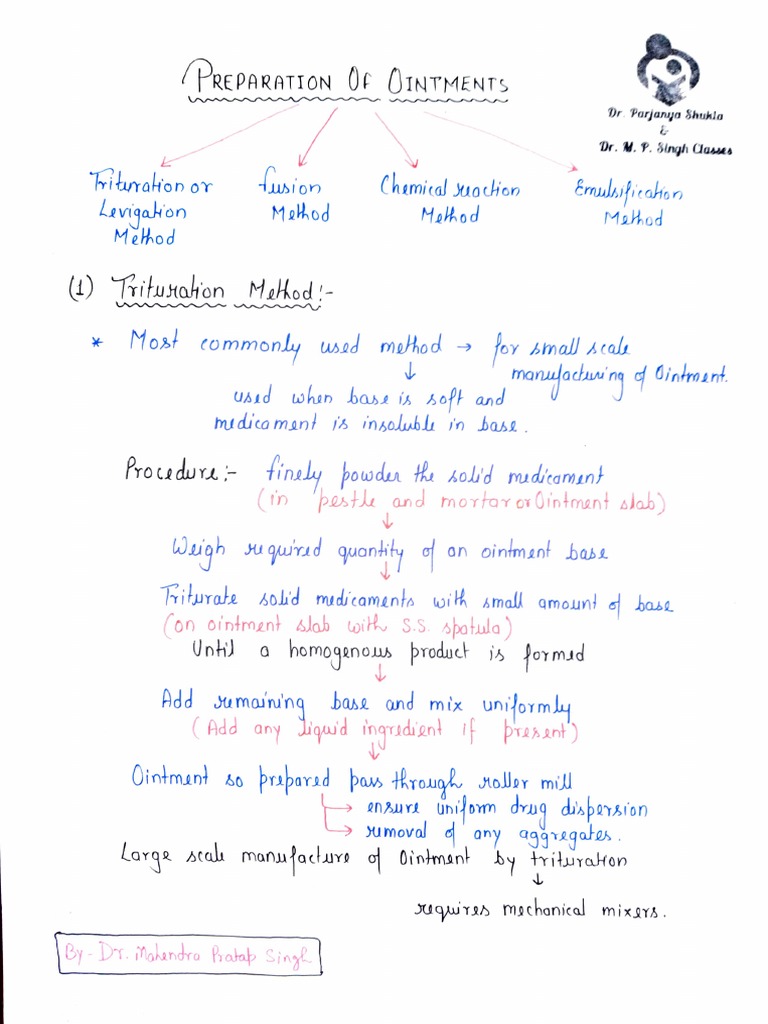 PREPARATION OF OINTMENTS
Dr. Parjanya Shukla
&
Dr. M. P. Singh Classes
Trituration or
Levigation
Method
fusion
Method
Chemical reaction
Method
Emulsification
Method
(1) Trituration Method:-
* Most commonly used method → for small scale
manufacturing of Ointment.
↓
used when base is soft and
medicament is insoluble in base.
Procedure:- finely powder the solid medicament
(in pestle and mortar or Ointment slab)
↓
Weigh required quantity of an ointment base
↓
Triturate solid medicaments with small amount of base
(on ointment slab with S.S. spatula)
Until a homogenous product is formed
↓
Add remaining base and mix uniformly
(Add any liquid ingredient if present)
↓
Ointment so prepared pass through roller mill
→ ensure uniform drug dispersion
→ removal of any aggregates.
Large scale manufacture of Ointment by trituration
↓
requires mechanical mixers.
By- Dr. Mahendra Pratap Singh